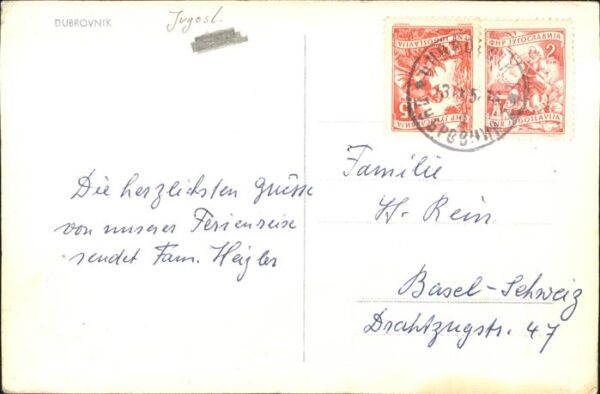 DUBROVNIK
Jugosl.
Die herzlichsten Grüsse
von unserer Ferienreise
sendet Fam. Heigler
ФНР ЈУГОСЛАВИЈА
15
ФНР ЈУГОСЛАВИЈА
2
FNR JUGOSLAVIJA
ДУБРОВНИК
Familie
H. Rein
Basel-Schweiz
Drahtzugstr. 47